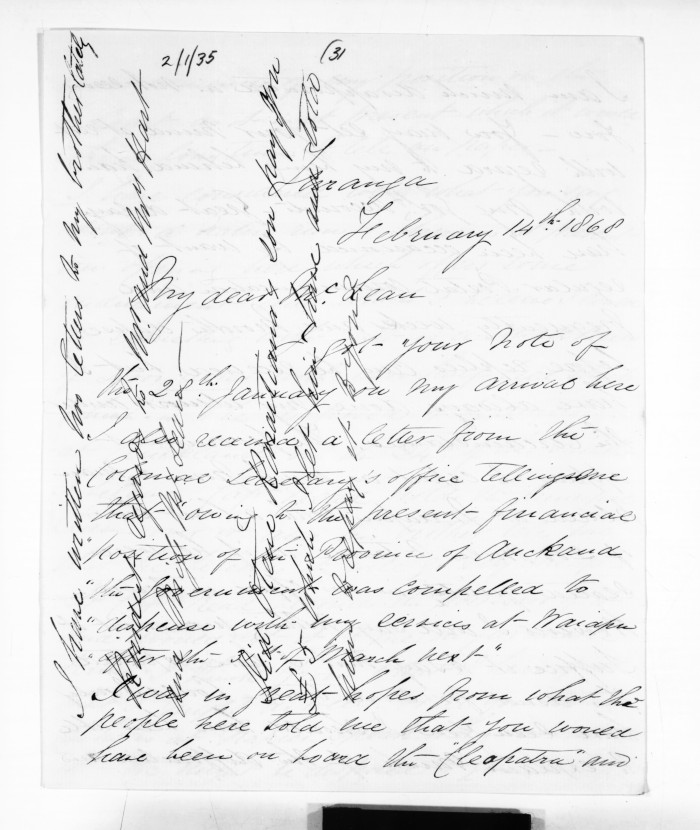 2/1/35
(31
Turanga
February 14th 1868
My dear McLean
I got your note of
the 28th January on my arrival here
I also received a letter from the
Colonial Secretary's office telling me
that "owing to the present financial
"position of the Province of Auckland
"the Government was compelled to
"dispense with my services at Waiapu
"after the 31st of March next"
I was in great hopes from what the
people here told me that you would
have been on board the "Cleopatra" and
I have written two letters to my brother lately
Kindest regards to Mr and Mrs Hart
and
will you pay him
£5 which let him have and I